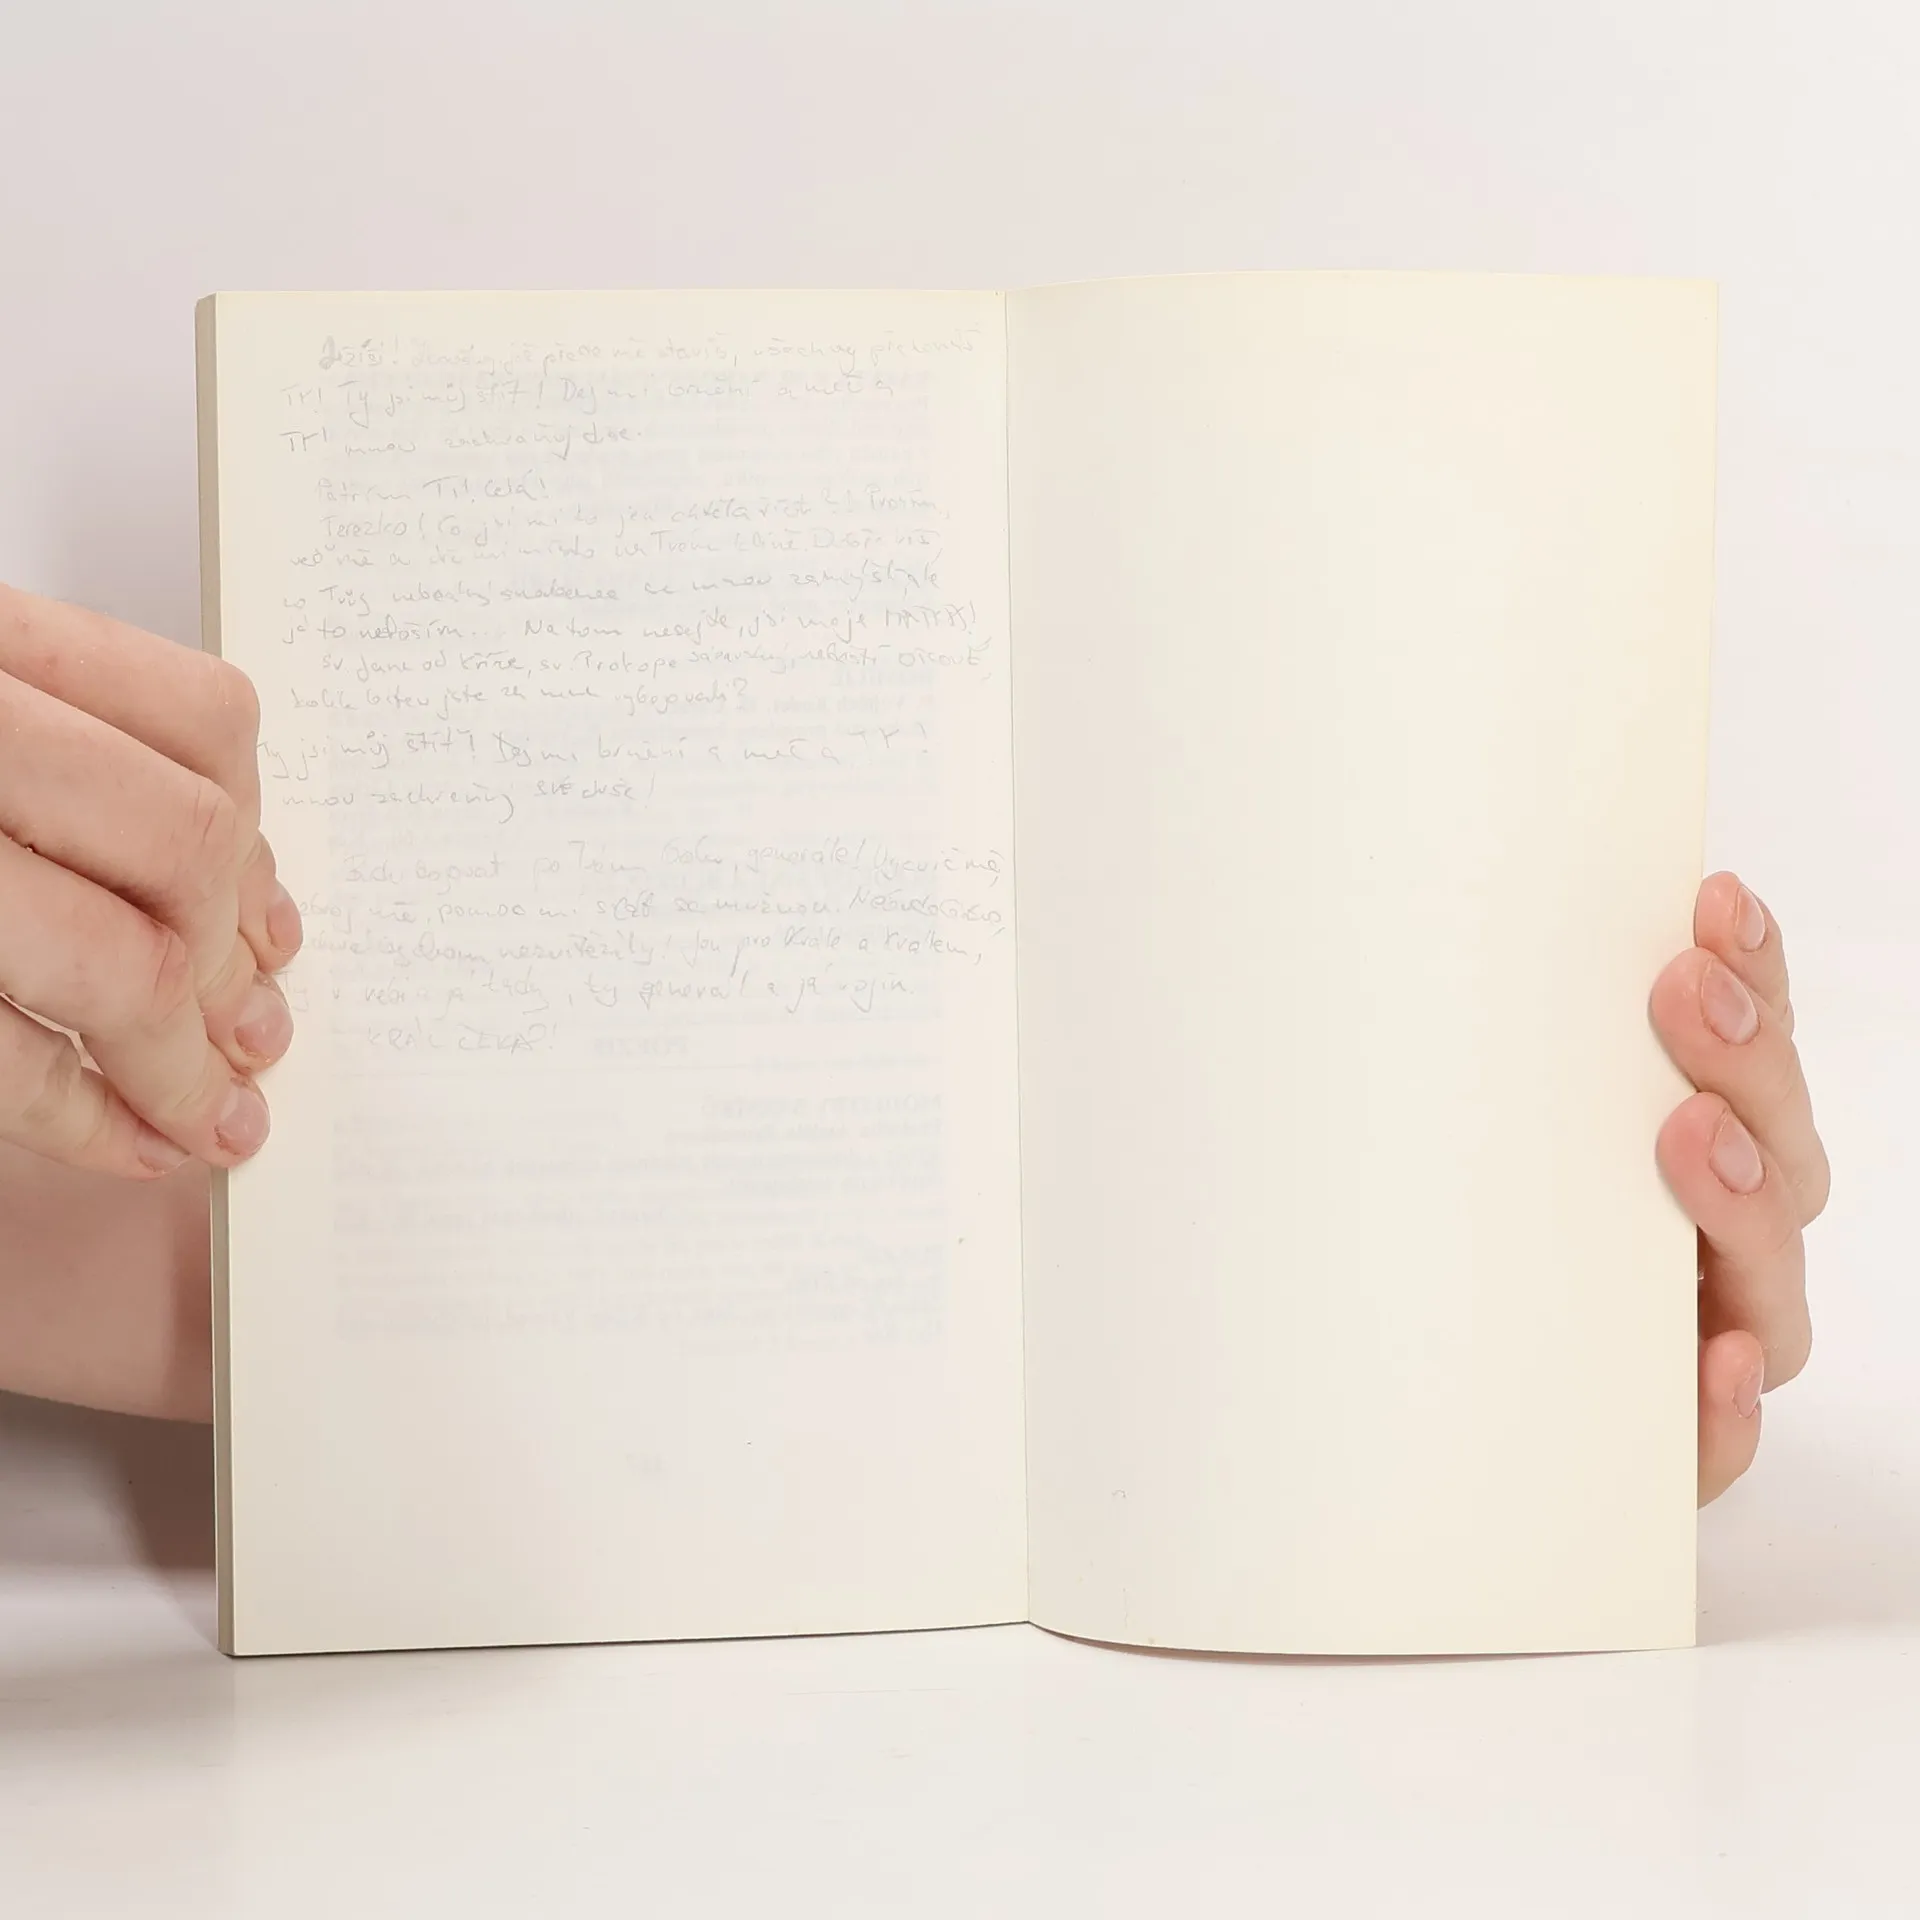 Ježíši! které přede mě stavíš, všechny překonáš
TY! Ty jsi můj štít! Dej mi brnění a meč a
TY! mnou zachraňuj duše.
Patřím Ti! Celá!
Terezko! Co jsi mi to jen chtěla říct?! Prosím,
veď mě a drž mi místo na Tvém klíně. Dobře víš,
co Tvůj nebeský snoubenec se mnou zamýšlí, ale
já to netuším... Na tom nesejde, jsi moje MATKA!
sv. Jane od Kříže, sv. Prokope sázavský, nebeští otcové,
kolik bitev jste za mne vybojovali?
Ty jsi můj štít! Dej mi brnění a meč a TY!
mnou zachraňuj své duše!
Budu bojovat po Tvém boku, generále! Vycvič mě,
vyzbroj mě, pomoz mi stát se mužnou.
nezvítězily! Jsu pro Krále a Králem,
Ty v nebi a já tady, ty generál a já vojín.
KRÁL ČEKÁ!